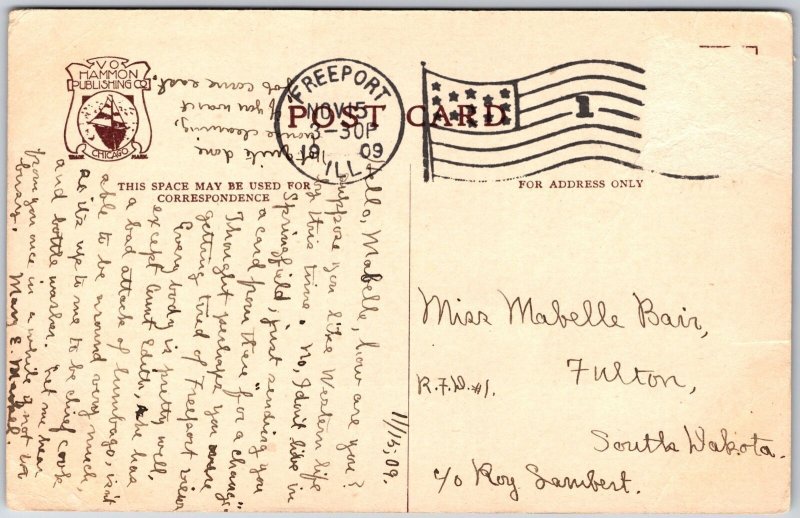 V.O.
HAMMON
PUBLISHING CO
CHICAGO
TRADE MARK
FREEPORT
NOV 15
3-30P
19 09
ILL.
1
POST CARD
THIS SPACE MAY BE USED FOR
CORRESPONDENCE
FOR ADDRESS ONLY
11/15, 09.
Hello, Mabelle, how are you?
Suppose you like Western life
by this time. No, I don't live in
Springfield, just sending you
a card from there "for a change."
Thought perhaps you were
getting tired of Freeport views
Every body is pretty well
except Aunt Edith, she has
a bad attack of lumbago, isn't
able to be around very much,
so its up to me to be chief cook
and bottle washer. Let me hear
from you once in a while if not too
busy. Mary E.
Not quite done
house cleaning,
if you want
come east.
Miss Mabelle Bair,
Fulton,
R.F.D. #1.
South Dakota.
c/o Roy Lambert.